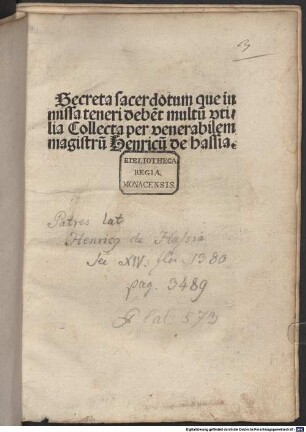 Secreta sacerdotum que in
missa teneri debēt multū vti⸗
lia Collecta per venerabilem
magistrū Henricū de hassia.
BIBLIOTHECA
REGIA
MONACENSIS.
Patres lat
Henricq de Hassia
Sec XIV. flor. 1380
pag. 3489
P lat. 573
Digitalisierung gefördert durch die Deutsche Forschungsgemeinschaft